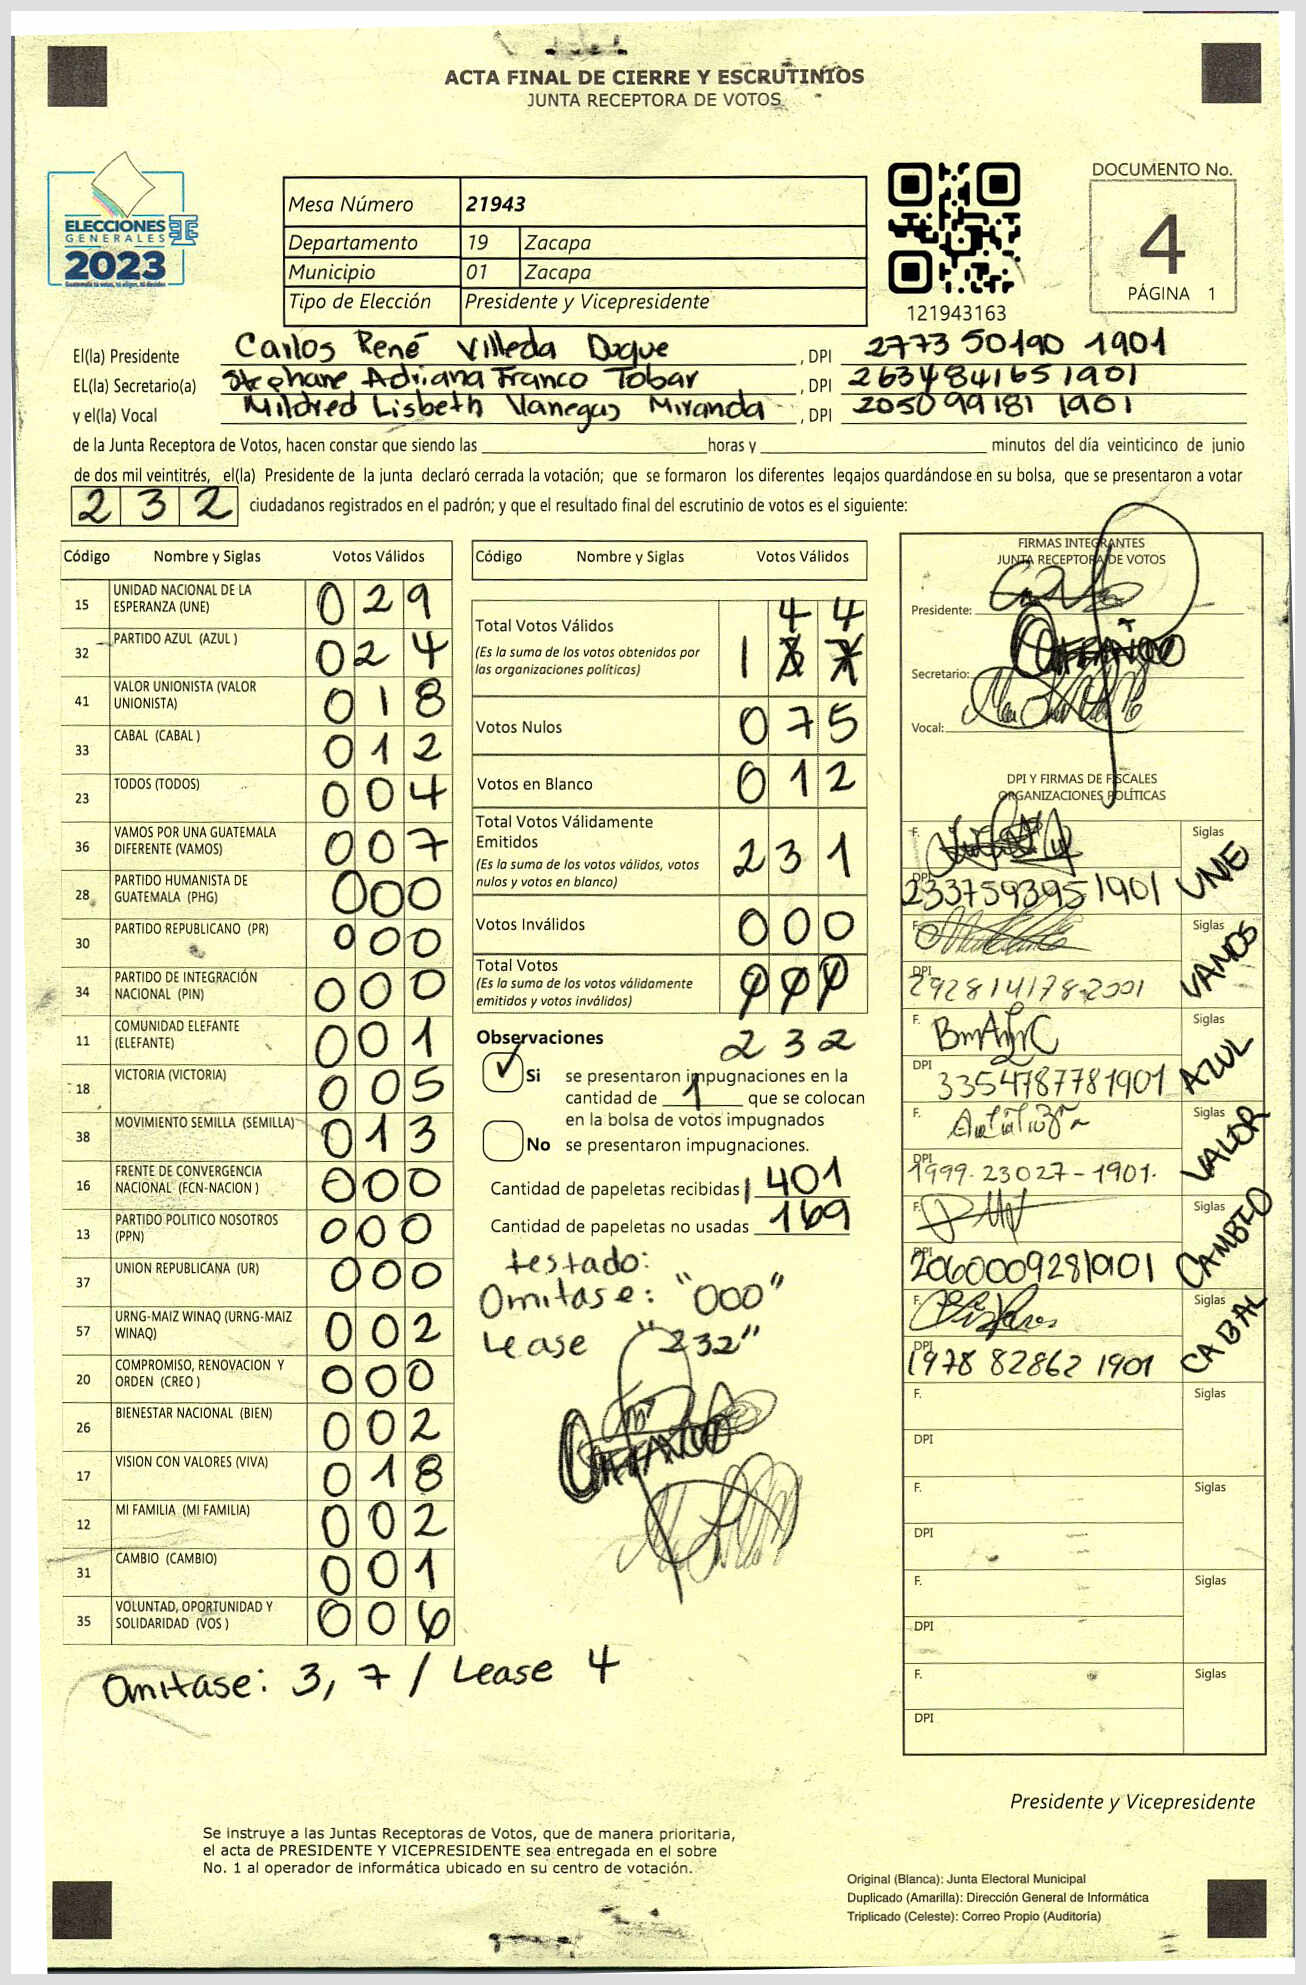 ACTA FINAL DE CIERRE Y ESCRUTINIOS
JUNTA RECEPTORA DE VOTOS
ELECCIONES
GENERALES
2023
Guatemala tú votas, tú eliges, tú decides
Mesa Número 21943
Departamento 19 Zacapa
Municipio 01 Zacapa
Tipo de Elección Presidente y Vicepresidente
121943163
DOCUMENTO No.
4
PÁGINA 1
El(la) Presidente Carlos René Villeda Duque , DPI 2773 50190 1901
EL(la) Secretario(a) Stephane Adriana Franco Tobar , DPI 2634841651901
y el(la) Vocal Mildred Lisbeth Vanegas Miranda , DPI 205099181 1901
de la Junta Receptora de Votos, hacen constar que siendo las horas y minutos del día veinticinco de junio
de dos mil veintitrés, el(la) Presidente de la junta declaró cerrada la votación; que se formaron los diferentes legajos guardándose en su bolsa, que se presentaron a votar
232 ciudadanos registrados en el padrón; y que el resultado final del escrutinio de votos es el siguiente:
Código Nombre y Siglas Votos Válidos
15 UNIDAD NACIONAL DE LA ESPERANZA (UNE) 029
32 PARTIDO AZUL (AZUL ) 024
41 VALOR UNIONISTA (VALOR UNIONISTA) 018
33 CABAL (CABAL ) 012
23 TODOS (TODOS) 004
36 VAMOS POR UNA GUATEMALA DIFERENTE (VAMOS) 007
28 PARTIDO HUMANISTA DE GUATEMALA (PHG) 000
30 PARTIDO REPUBLICANO (PR) 000
34 PARTIDO DE INTEGRACIÓN NACIONAL (PIN) 000
11 COMUNIDAD ELEFANTE (ELEFANTE) 001
18 VICTORIA (VICTORIA) 005
38 MOVIMIENTO SEMILLA (SEMILLA) 013
16 FRENTE DE CONVERGENCIA NACIONAL (FCN-NACION ) 000
13 PARTIDO POLITICO NOSOTROS (PPN) 000
37 UNION REPUBLICANA (UR) 000
57 URNG-MAIZ WINAQ (URNG-MAIZ WINAQ) 002
20 COMPROMISO, RENOVACION Y ORDEN (CREO ) 000
26 BIENESTAR NACIONAL (BIEN) 002
17 VISION CON VALORES (VIVA) 018
12 MI FAMILIA (MI FAMILIA) 002
31 CAMBIO (CAMBIO) 001
35 VOLUNTAD, OPORTUNIDAD Y SOLIDARIDAD (VOS ) 006
Omitase: 3, 7 / Lease 4
Código Nombre y Siglas Votos Válidos
Total Votos Válidos 144
(Es la suma de los votos obtenidos por
las organizaciones políticas)
Votos Nulos 075
Votos en Blanco 012
Total Votos Válidamente
Emitidos 231
(Es la suma de los votos válidos, votos
nulos y votos en blanco)
Votos Inválidos 000
Total Votos 000
(Es la suma de los votos válidamente
emitidos y votos inválidos)
232
Observaciones
Si se presentaron impugnaciones en la
cantidad de 1 que se colocan
en la bolsa de votos impugnados
No se presentaron impugnaciones.
Cantidad de papeletas recibidas 401
Cantidad de papeletas no usadas 169
testado:
Omitase: "000"
Lease "232"
FIRMAS INTEGRANTES
JUNTA RECEPTORA DE VOTOS
Presidente:
Secretario:
Vocal:
DPI Y FIRMAS DE FISCALES
ORGANIZACIONES POLÍTICAS
F. Siglas UNE
DPI 2337593951901
F. Siglas VAMOS
DPI 292814178-2001
F. Siglas AZUL
DPI 3354787781901
F. Siglas VALOR
DPI 1999-23027-1901.
F. Siglas CAMBIO
DPI 2060009281901
F. Siglas CABAL
DPI 1978 82862 1901
F. Siglas
DPI
F. Siglas
DPI
F. Siglas
DPI
F. Siglas
DPI
Presidente y Vicepresidente
Se instruye a las Juntas Receptoras de Votos, que de manera prioritaria,
el acta de PRESIDENTE Y VICEPRESIDENTE sea entregada en el sobre
No. 1 al operador de informática ubicado en su centro de votación.
Original (Blanca): Junta Electoral Municipal
Duplicado (Amarilla): Dirección General de Informática
Triplicado (Celeste): Correo Propio (Auditoría)